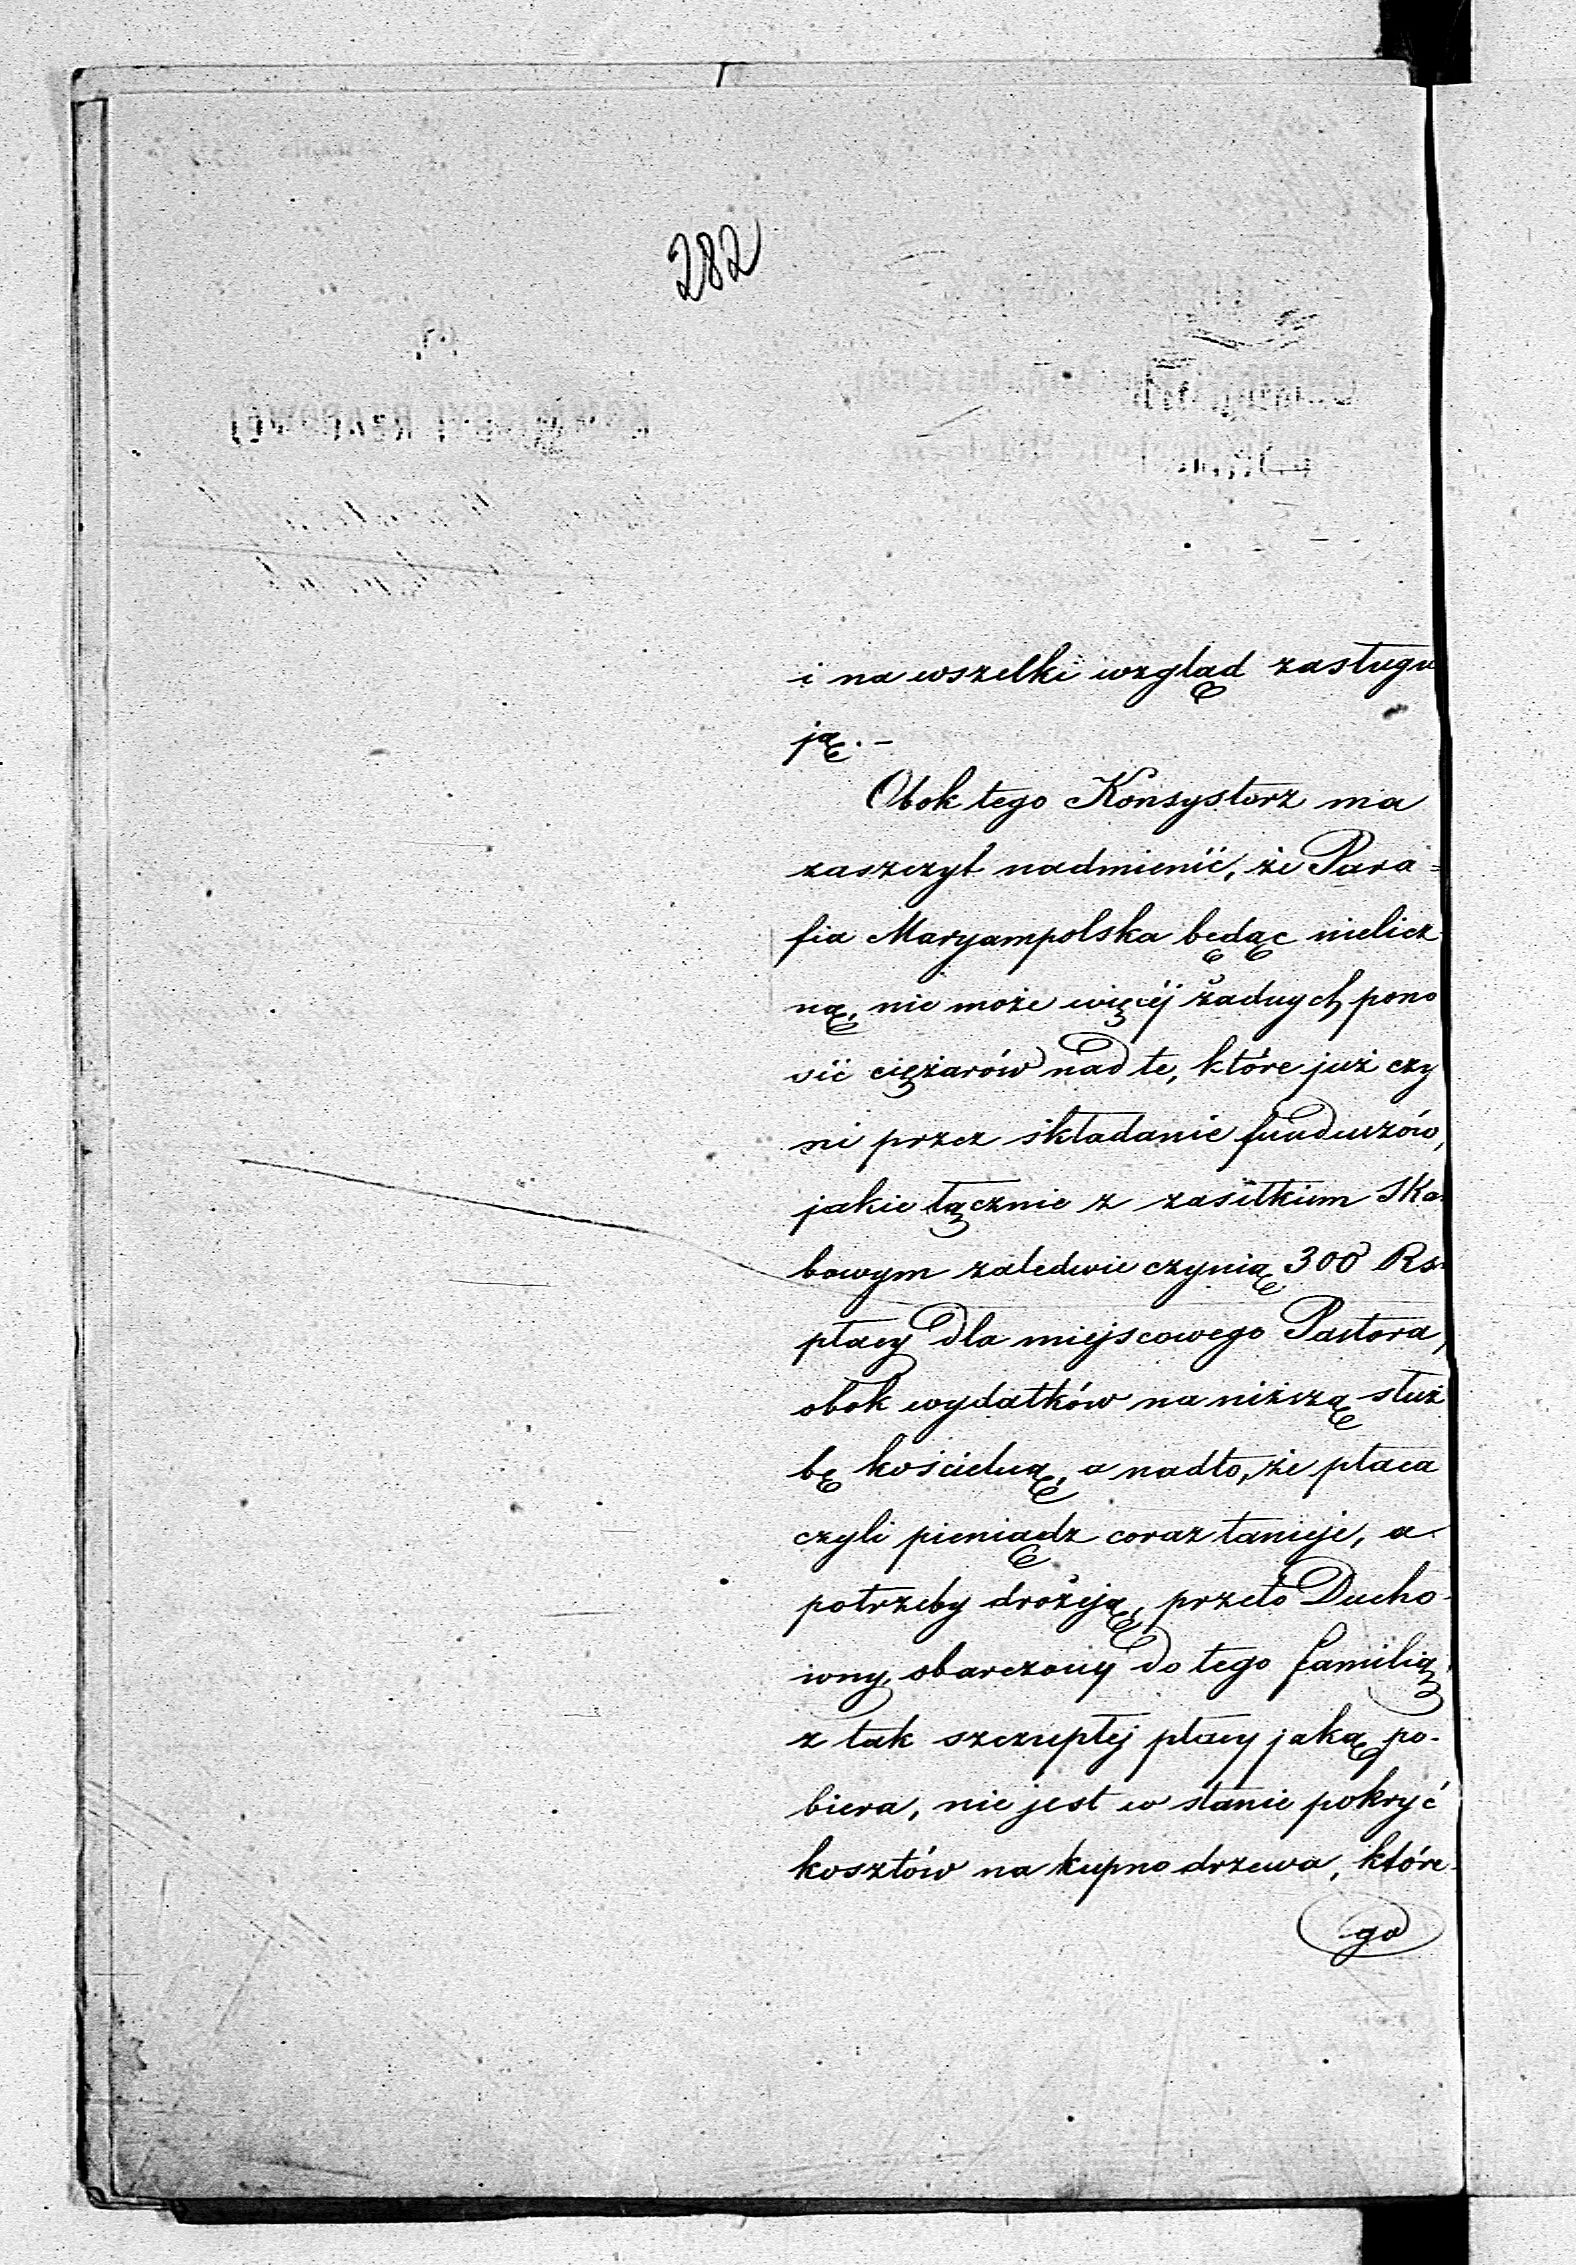 282
i na wszelki wzgląd zasługu
ją. –
Obok tego Konsystorz ma
zaszczyt nadmienić, że Para=
fia Maryampolska będąc nielicz
ną, nie może więcéj żadnych pono
sić ciężarów nad te, które już czy
ni przez składanie funduszów,
jakie łącznie z zasiłkiem Ska-
bowym zaledwie czynią 300 Rs.
płacy dla miejscowego Pastora,
obok wydatków na niższą służ
bę kościelną, a nadto, że płaca
czyli pieniądz coraz tanieje, a
potrzeby drożeją, przeto Ducho-
wny, obarczony do tego familią,
z tak szczupłej płacy jaką po-
biera, nie jest w stanie pokryć
kosztów na kupno drzewa, które-
go